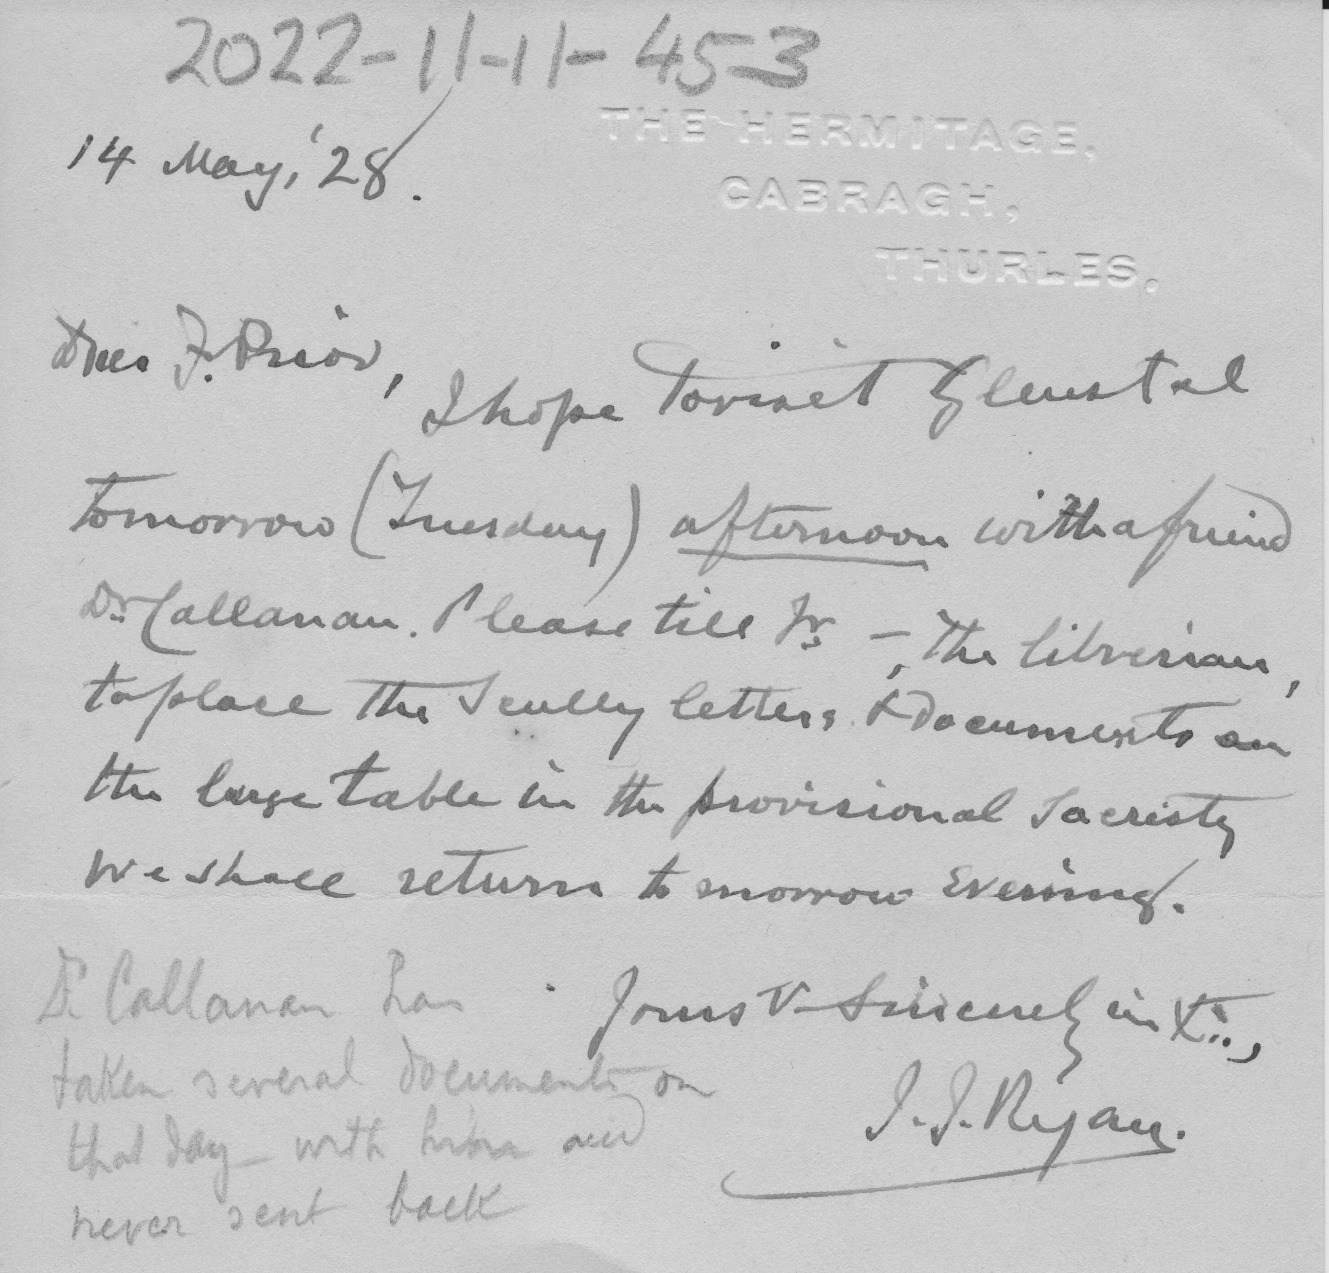 2022-11-11-453
THE HERMITAGE,
CABRAGH,
THURLES.
14 May, '28.
Dear F. Prior,
I hope to visit Glenstal
tomorrow (Tuesday) afternoon with a friend
Dr. Callanan. Please tell Fr. –, the librarian,
to place the Scully letters & documents on
the large table in the provisional sacristy
We shall return tomorrow evening.
Yours v. sincerely in Xt.,
J. J. Ryan.
Dr Callanan has
taken several documents on
that day – with him and
never sent back